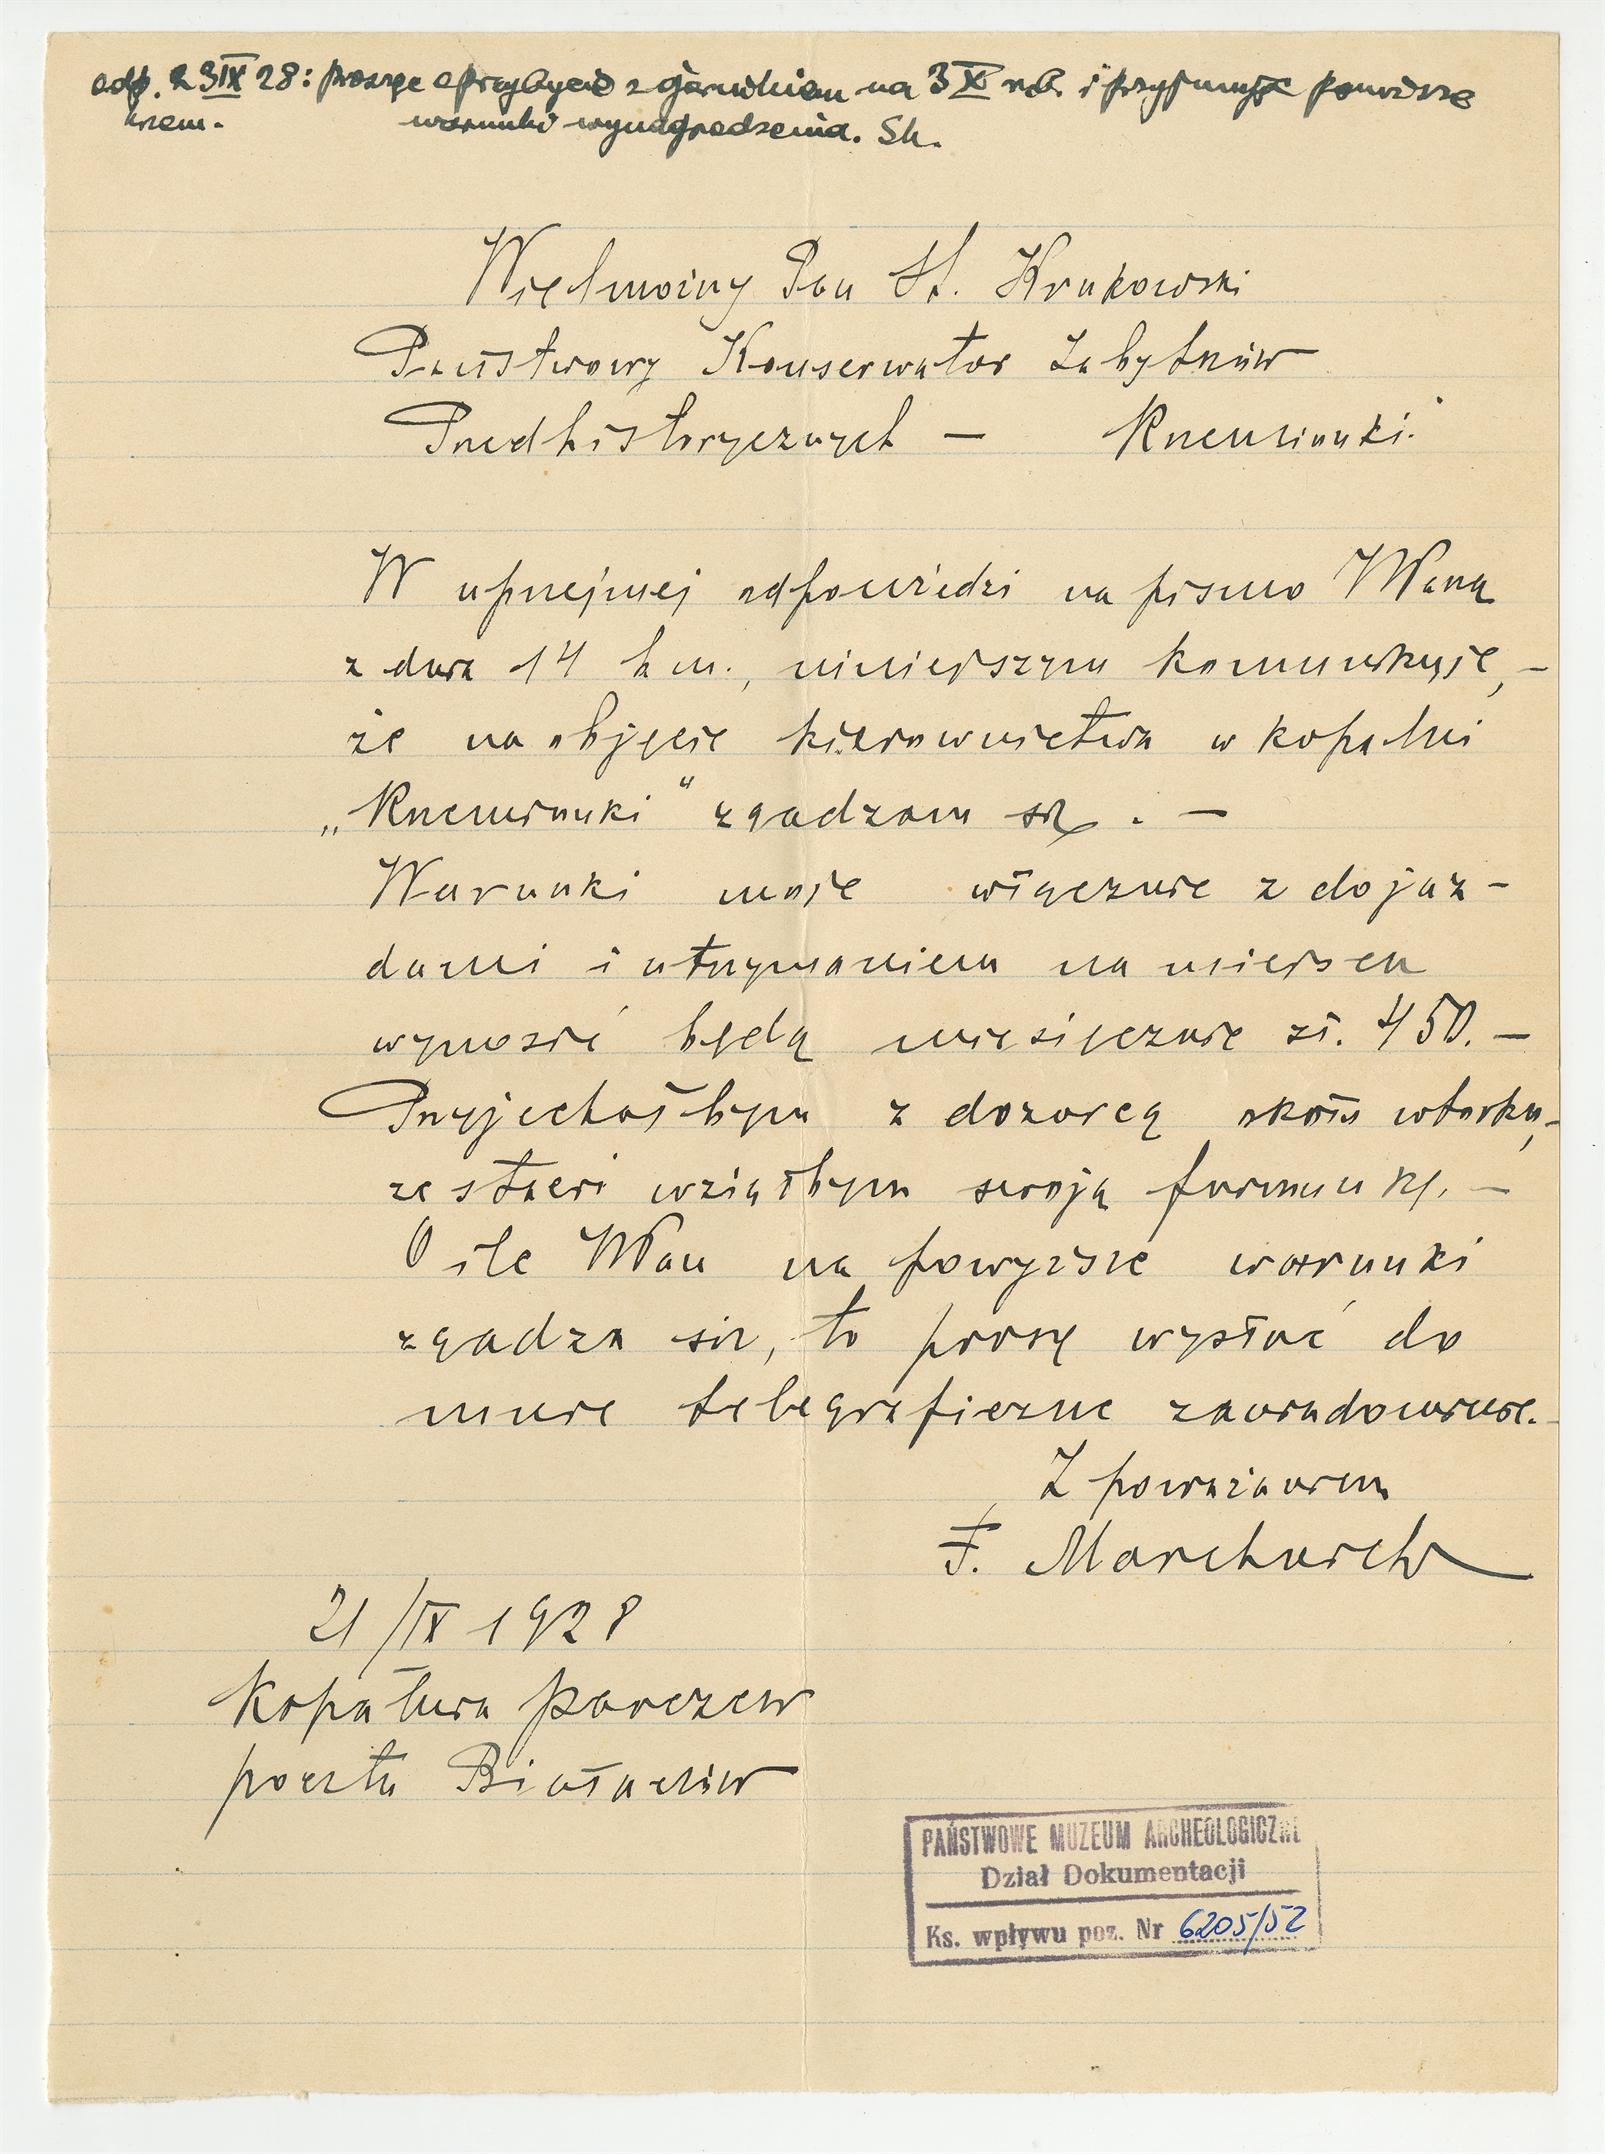 odp. 23 IX 28: proszę o przybycie z górnikiem na 3 X rb. i przyjmuję powyższe
krzem. warunki wynagrodzenia. Sk.
Wielmożny Pan St. Krukowski
Państwowy Konserwator Zabytków
Przedhistorycznych — Krzemionki.
W uprzejmej odpowiedzi na pismo WPana
z dnia 14 b m., niniejszym komunikuję, —
że na objęcie kierownictwa w kopalni
„Krzemionki" zgadzam się. —
Warunki moje włącznie z dojaz-
dami i utrzymaniem na miejscu
wynosić będą miesięcznie zł. 450. —
Przyjechałbym z dozorcą około wtorku, -
ze stacji wziąłbym swoją furmankę. —
O ile WPan na powyższe warunki
zgadza się, to proszę wysłać do
mnie telegraficzne zawiadomienie. -
Z poważaniem
F. Marchwick
21/IX 1928
Kopalnia Parczew
poczta Białaczów
PAŃSTWOWE MUZEUM ARCHEOLOGICZNE
Dział Dokumentacji
Ks. wpływu poz. Nr 6205/52